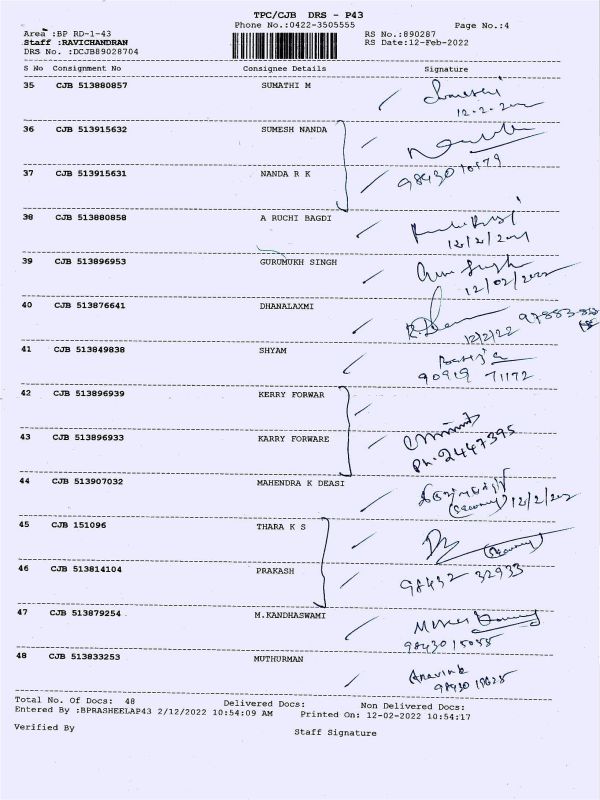 TPC/CJB DRS - P43
Phone No.:0422-3505555 Page No.:4
Area :BP RD-1-43 RS No.:890287
Staff :RAVICHANDRAN RS Date:12-Feb-2022
DRS No. :DCJB89028704
S No Consignment No Consignee Details Signature
35 CJB 513880857 SUMATHI M
12-2-202
36 CJB 513915632 SUMESH NANDA
37 CJB 513915631 NANDA R K
98430 10179
38 CJB 513880858 A RUCHI BAGDI
39 CJB 513896953 GURUMUKH SINGH
12/02/2022
40 CJB 513876641 DHANALAXMI
12/2/22
41 CJB 513849838 SHYAM
90919 71172
42 CJB 513896939 KERRY FORWAR
43 CJB 513896933 KARRY FORWARE
Ph.2447395
44 CJB 513907032 MAHENDRA K DEASI
12/2/202
45 CJB 151096 THARA K S
46 CJB 513814104 PRAKASH
98432 32933
47 CJB 513879254 M.KANDHASWAMI
98430 15055
48 CJB 513833253 MUTHURMAN
Aravink
Total No. Of Docs: 48 Delivered Docs: Non Delivered Docs:
Entered By :BPRASHEELAP43 2/12/2022 10:54:09 AM Printed On: 12-02-2022 10:54:17
Verified By Staff Signature